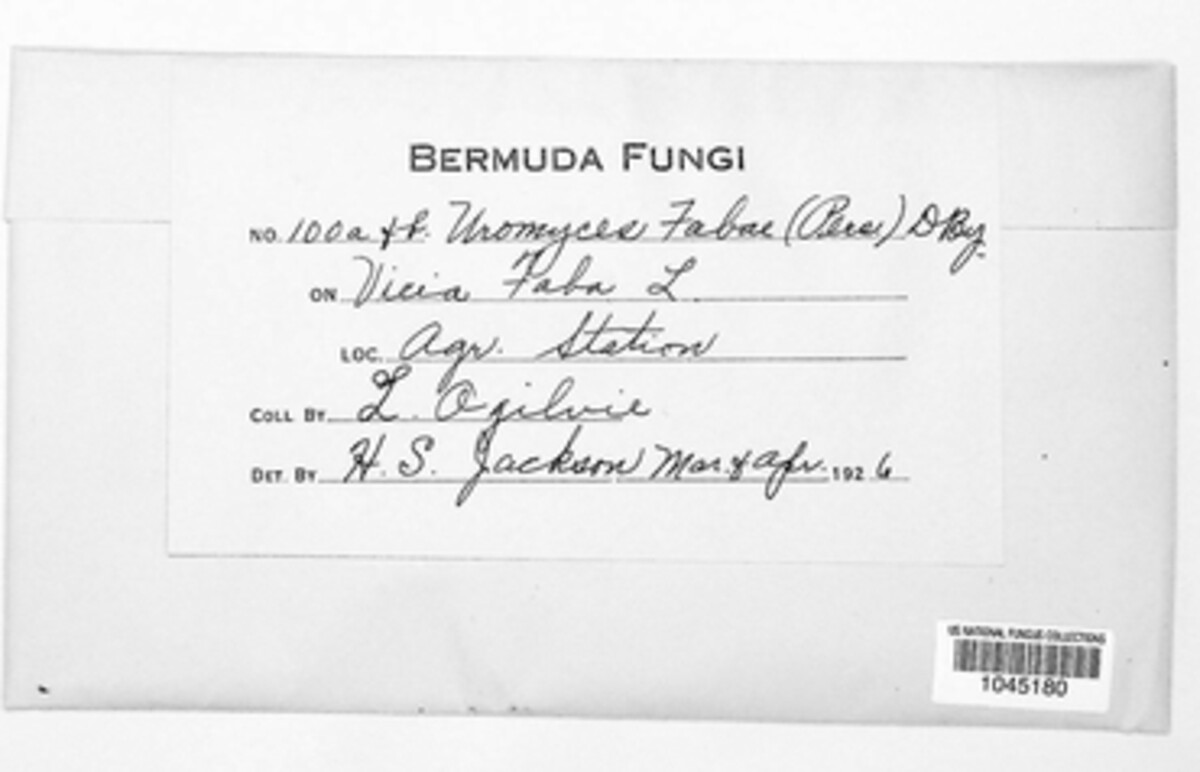 BERMUDA FUNGI
NO. 100a & b. Uromyces Fabae (Pers.) D By.
ON Vicia Faba L
LOC. Agr. Station
COLL BY L. Ogilvie
DET. BY H. S. Jackson Mar. & Apr. 1926
US NATIONAL FUNGUS COLLECTIONS
1045180